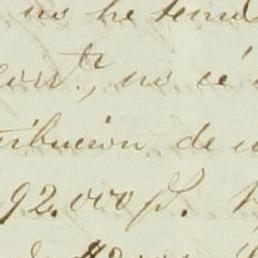 no he tenid
corr.te, no sé
tribucion de u
92.000 p$.
$2